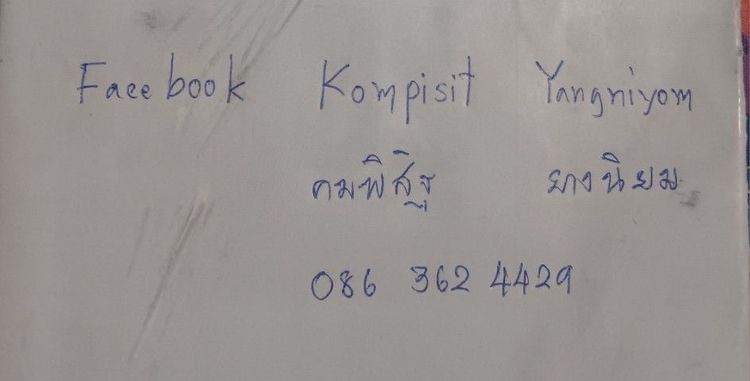 Facebook Kompisit Yangniyom
คมพิสิฐ ยางนิยม
086 362 4429